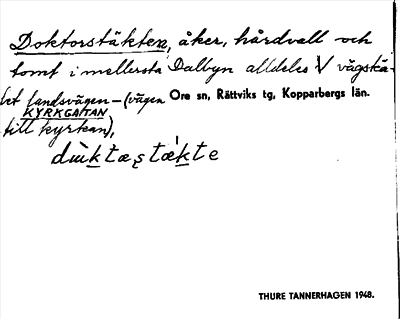 Doktorstäkten, åker, hårdvall och
tomt i mellersta Dalbyn alldeles V vägskä-
let landsvägen – (vägen Ore sn, Rättviks tg, Kopparbergs län.
KYRKGATAN
till kyrkan),
THURE TANNERHAGEN 1948.